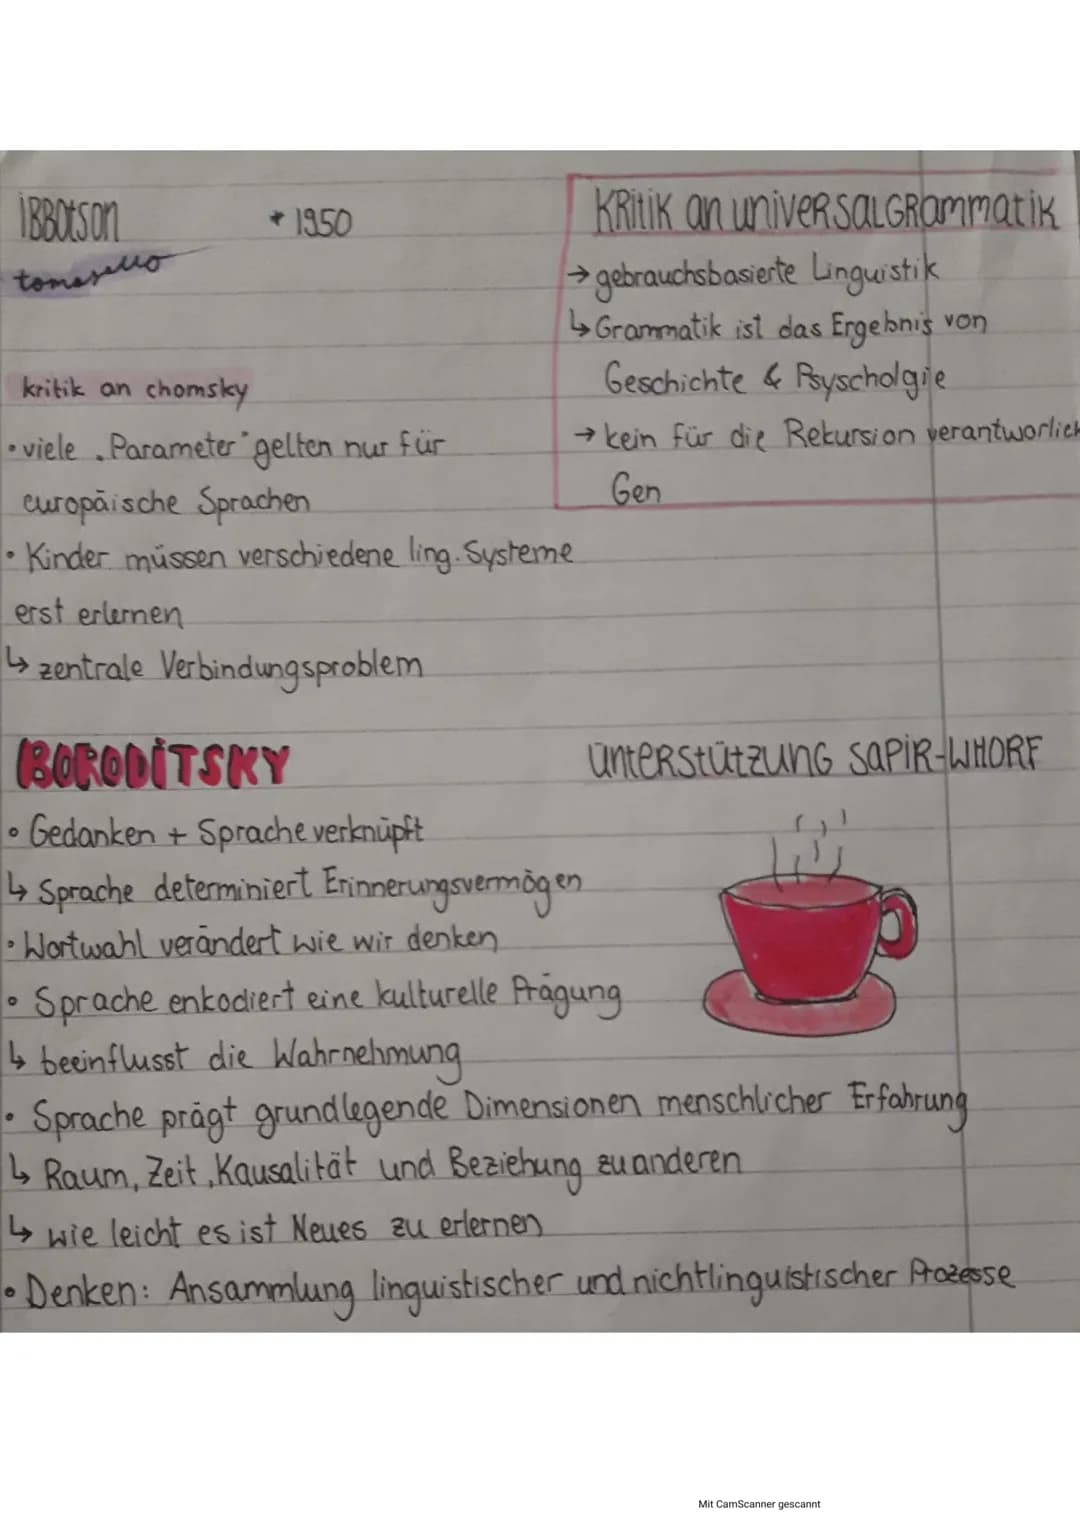 iBBOtSOn
* 1950
tomasello
kritik an chomsky
• viele „Parameter" gelten nur für
europäische Sprachen
• Kinder müssen verschiedene ling. Systeme
erst erlernen
↳ zentrale Verbindungsproblem
KRitiK an univERSaLGRammatiK
→ gebrauchsbasierte Linguistik
↳ Grammatik ist das Ergebnis von
Geschichte & Psyscholgiie
→ kein für die Rekursion verantworlich
Gen
BORODiTSKY
UntERStützUNG SAPiR-WHORF
• Gedanken + Sprache verknüpft
↳ Sprache determiniert Erinnerungsvermögen
• Wortwahl verändert wie wir denken
• Sprache enkodiert eine kulturelle Prägung
↳ beeinflusst die Wahrnehmung
• Sprache prägt grundlegende Dimensionen menschlicher Erfahrung
↳ Raum, Zeit, Kausalität und Beziehung zu anderen
↳ wie leicht es ist Neues zu erlernen
• Denken: Ansammlung linguistischer und nichtlinguistischer Prozesse
Mit CamScanner gescannt